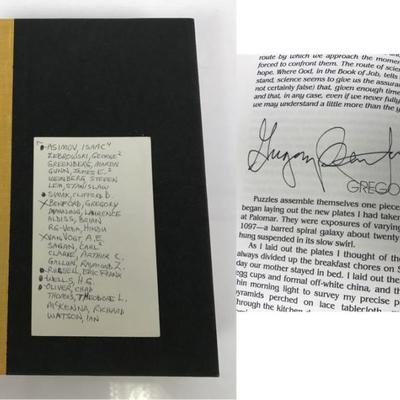 • ASIMOV, ISAAC 4
ZEBROWSKI, GEORGE 2
GREENBERG, MARTIN
GUNN, JAMES E. 2
WEINBERG STEVEN
LEM, STANISLAW
• SIMAK, CLIFFORD D.
X BENFORD, GREGORY
MANNING, LAURENCE
ALDISS, BRIAN
RG-VEDA, HINDU
X VAN VOGT, A.E.
SAGAN, CARL 2
CLARKE, ARTHUR C.
GALLUN, RAYMOND Z.
• RUSSELL, ERIC FRANK
• WELLS, H.G.
• OLIVER, CHAD
THOMAS, THEODORE L.
MCKENNA, RICHARD
WATSON, IAN
route by which we approach the momen
forced to confront them. The route of scien
hope. Where God, in the Book of Job, tells
stand, science seems to give us the assuran
not certainly false) that, given enough time
and that, in any case, even if we never fully
we may understand a little more than the y
Gregory
GREGO
Puzzles assemble themselves one piec
began laying out the new plates I had taken
at Palomar. They were exposures of varying
1097—a barred spiral galaxy about twenty
hung suspended in its slow swirl.
As I laid out the plates I thought of the
always divided up the breakfast chores on S
day our mother stayed in bed. I laid out the
egg cups and formal off-white china, and the
morning light to survey my precise p
pyramids perched on lace tablecloth
through the kitchen d